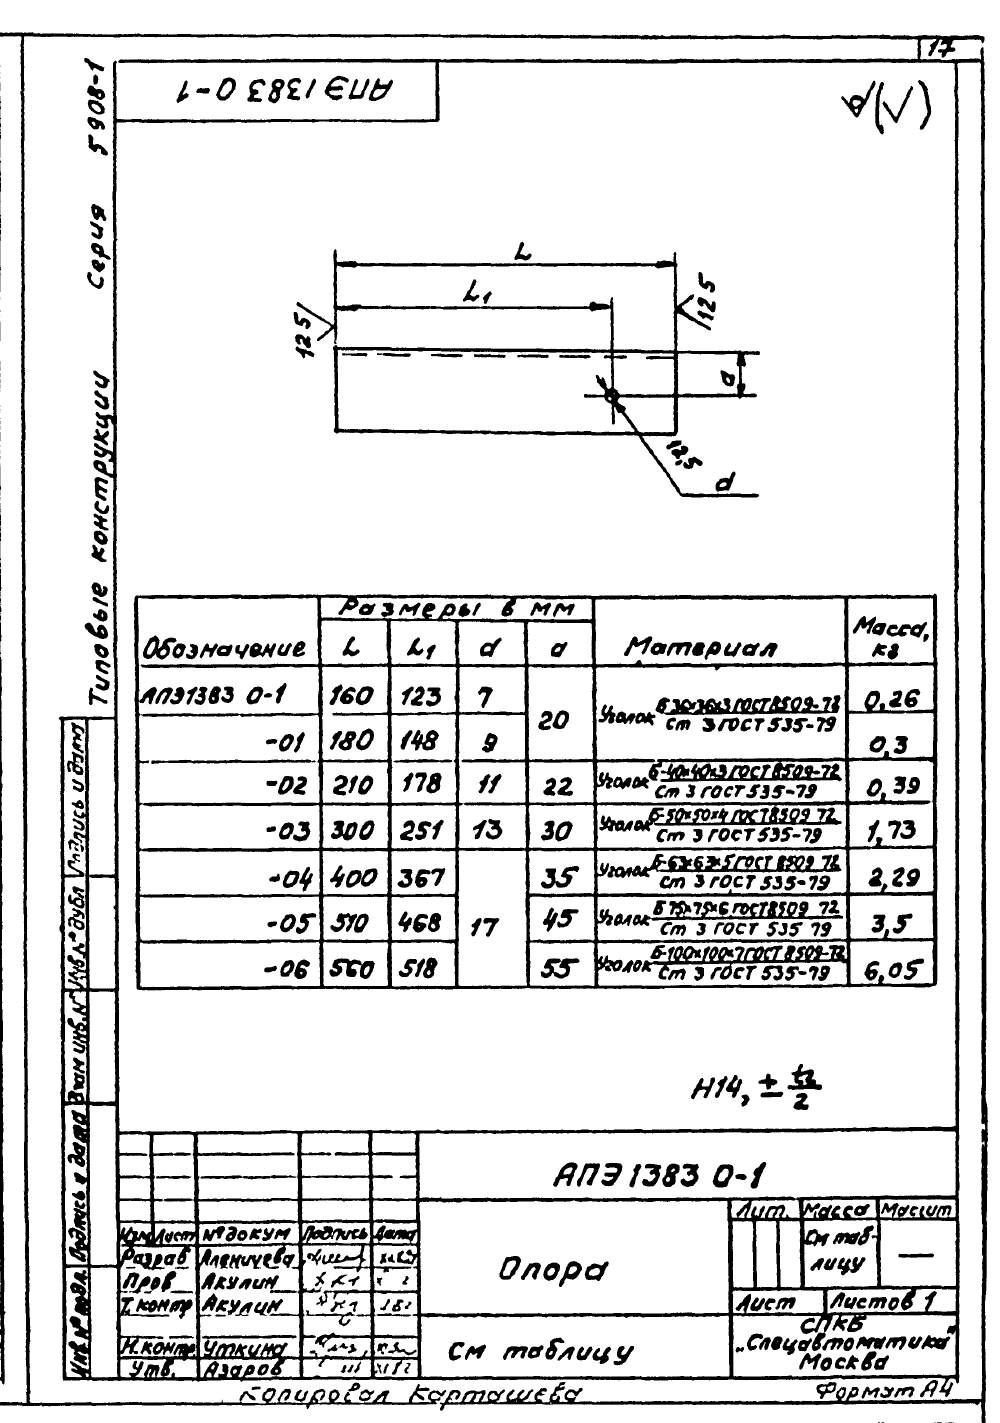 17
АПЭ1383 0-1
Типовые конструкции Серия 5908-1
L
L1
12 5
12 5
a
12,5
d
Обозначение
Размеры в мм
L L1 d a
Материал
Масса, кг
АПЭ1383 0-1 160 123 7 20 Уголок Б 36×36×3 ГОСТ 8509-72 / Ст 3 ГОСТ 535-79 0,26
-01 180 148 9 0,3
-02 210 178 11 22 Уголок Б-40×40×3 ГОСТ 8509-72 / Ст 3 ГОСТ 535-79 0,39
-03 300 251 13 30 Уголок Б-50×50×4 ГОСТ 8509 72 / Ст 3 ГОСТ 535-79 1,73
-04 400 367 17 35 Уголок Б-63×63×5 ГОСТ 8509 72 / Ст 3 ГОСТ 535-79 2,29
-05 510 468 45 Уголок Б 75×75×6 ГОСТ 8509 72 / Ст 3 ГОСТ 535 79 3,5
-06 560 518 55 Уголок Б-100×100×7 ГОСТ 8509-72 / Ст 3 ГОСТ 535-79 6,05
H14, ± t2/2
Инв № подл. Подпись и дата Взам инв. № Инв. № дубл Подпись и дата
АПЭ1383 0-1
Изм Лист № докум Подпись Дата
Разраб Аленичева
Пров Акулин
Т. контр Акулин
Н. контр Уткина
Утв. Азаров
Опора
См таблицу
Лит. Масса Масшт
См таб-
лицу —
Лист Листов 1
СПКБ
„Спецавтоматика"
Москва
Копировал Карташева
Формат А4